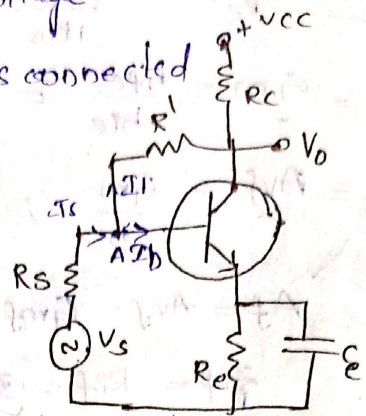 s connected
+VCC
RC
R'
Vo
I1
Is
A Ib
Rs
Vs
Re
Ce